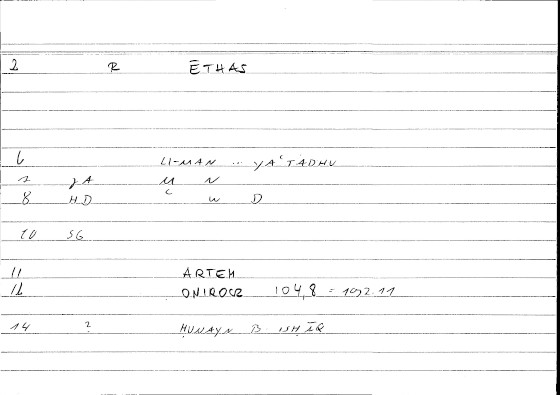 2 R ETHAS
6 LI-MAN ... YAʿTADHU
7 JA M N
8 HD ʿ W D
10 SG
11 ARTEM
12 ONIROCR 104,8 = 192.11
14 ? ḤUNAYN B ISḤĀQ